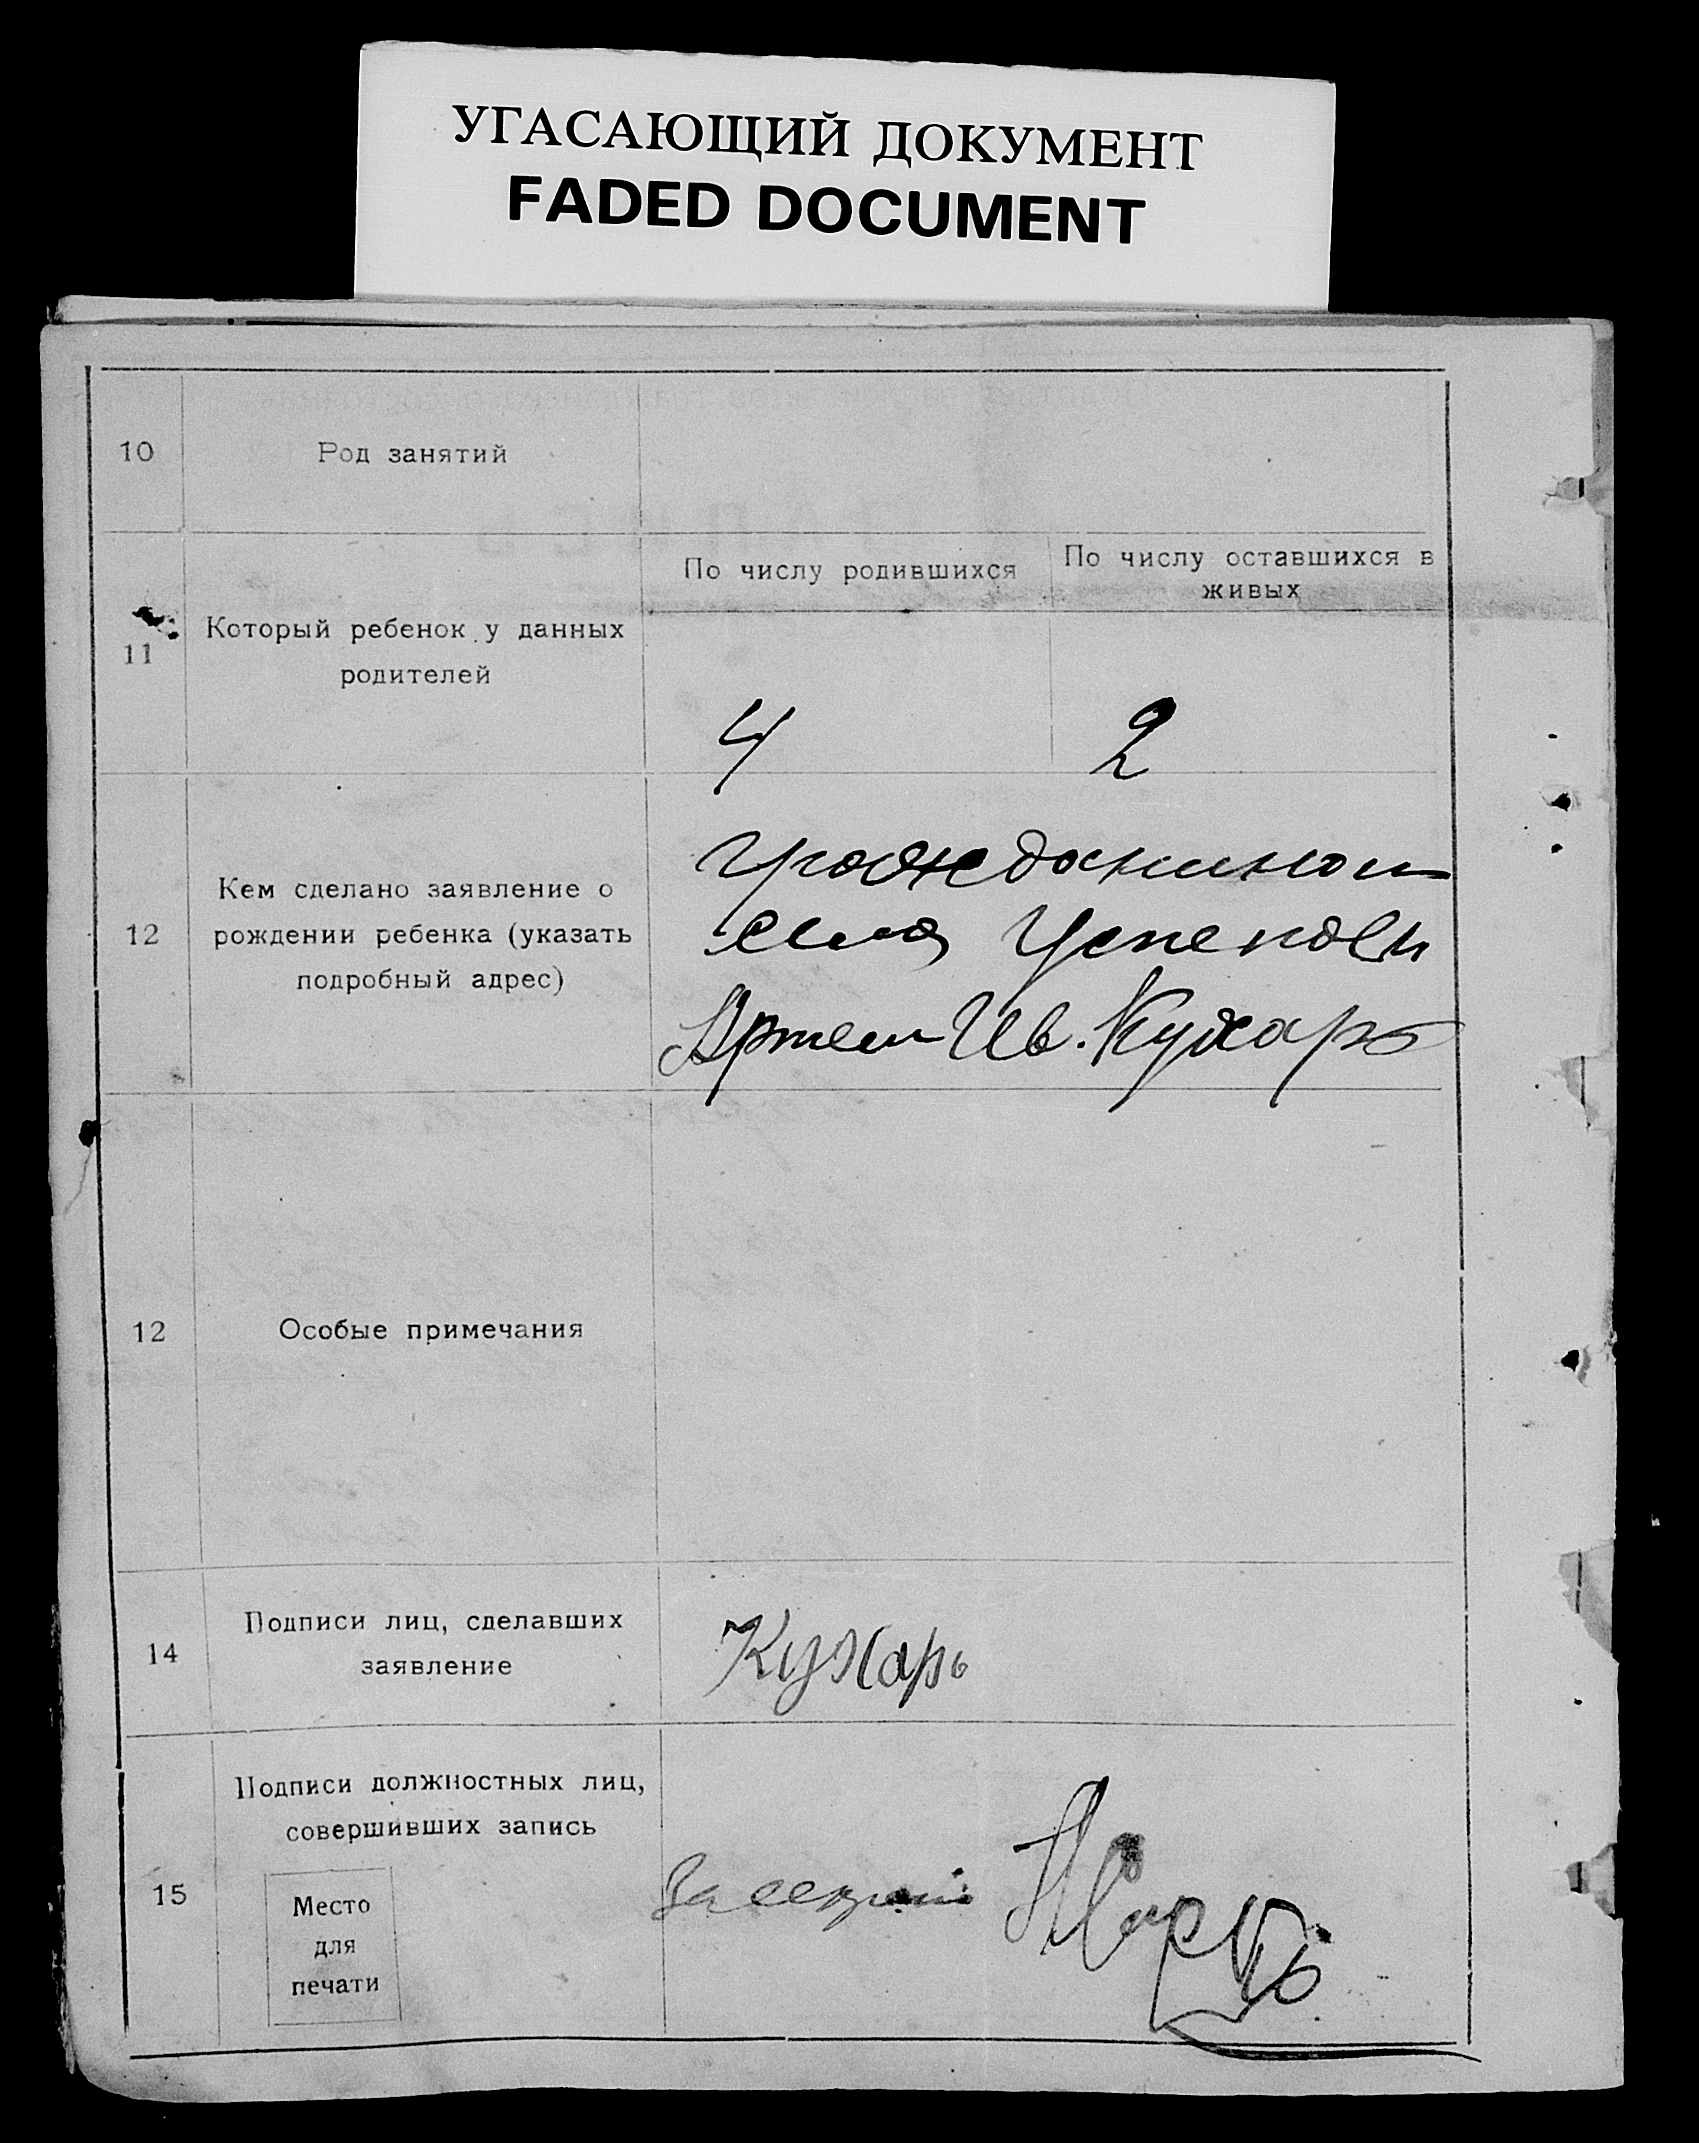 УГАСАЮЩИЙ ДОКУМЕНТ
FADED DOCUMENT
10
Род занятий
11
Который ребенок у данных
родителей
По числу родившихся
По числу оставшихся в
живых
4
2
12
Кем сделано заявление о
рождении ребенка (указать
подробный адрес)
гражданином
села
Артем Ив. Кухарь
12
Особые примечания
14
Подписи лиц, сделавших
заявление
Кухарь
15
Подписи должностных лиц,
совершивших запись
Место
для
печати
За